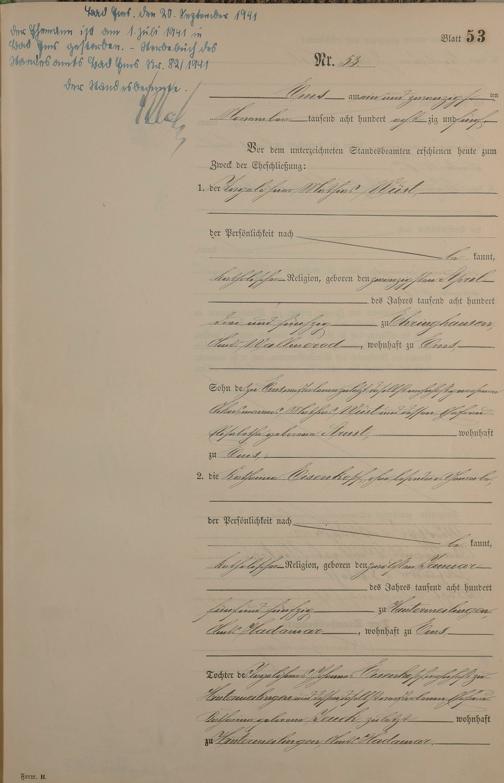 Bad Ems, den 20. September 1941
Der Ehemann ist am 1. Juli 1941 in
Bad Ems gestorben. - Sterbebuch des
Standesamts Bad Ems Nr. 82/1941
Der Standesbeamte.
Blatt 53
Nr. 53
Ems am ein und zwanzigsten
tausend acht hundert achtzig und fünf
Vor dem unterzeichneten Standesbeamten erschienen heute zum
Zweck der Eheschließung:
1. der Tagelöhner Mathias Wüst
der Persönlichkeit nach
be kannt,
katholischer Religion, geboren den zwanzigsten April
des Jahres tausend acht hundert
drei und fünfzig zu
Amts Wallmerod, wohnhaft zu Ems
Sohn de
Mathias Wüst und dessen Ehefrau
geborene wohnhaft
zu Ems
2. die Katharina Eisenkopf, ohne besonderes Gewerbe,
der Persönlichkeit nach
be kannt,
katholischer Religion, geboren den zwölften Januar
des Jahres tausend acht hundert
fünf und fünfzig zu Hintermeilingen,
Amts Hadamar, wohnhaft zu Ems
Tochter de Tagelöhners Johann Eisenkopf wohnhaft zu
Hintermeilingen und dessen daselbst verstorbenen Ehefrau
Katharina geborene zuletzt wohnhaft
zu Hintermeilingen Amts Hadamar.
Form. H.